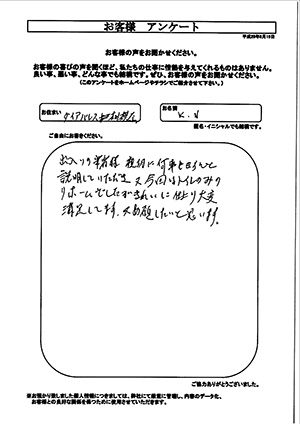 お客様 アンケート
平成28年6月10日
お客様の声をお聞かせください。
お客様の喜びの声を聞くほど、私たちの仕事に情熱を与えてくれるものはありません。
良い事、悪い事、どんな事でも結構です。ぜひ、お客様の声をお聞かせください。
(このアンケートをホームページやチラシでご紹介させて下さい。)
お住まい
お名前
K.N
匿名・イニシャルでも結構です。
ご自由にお書きください。
出入りの業者様 親切に何事もきちんと
説明していただき 又今回はトイレのみの
リホームでしたがきれいに仕上り大変
満足してます。又お願したいと思います。
ご協力ありがとうございました。
※お預かり致しました個人情報につきましては、弊社にて厳重に管理し、内容のデータ化、
お客様との良好な関係を保つために使用させていただきます。